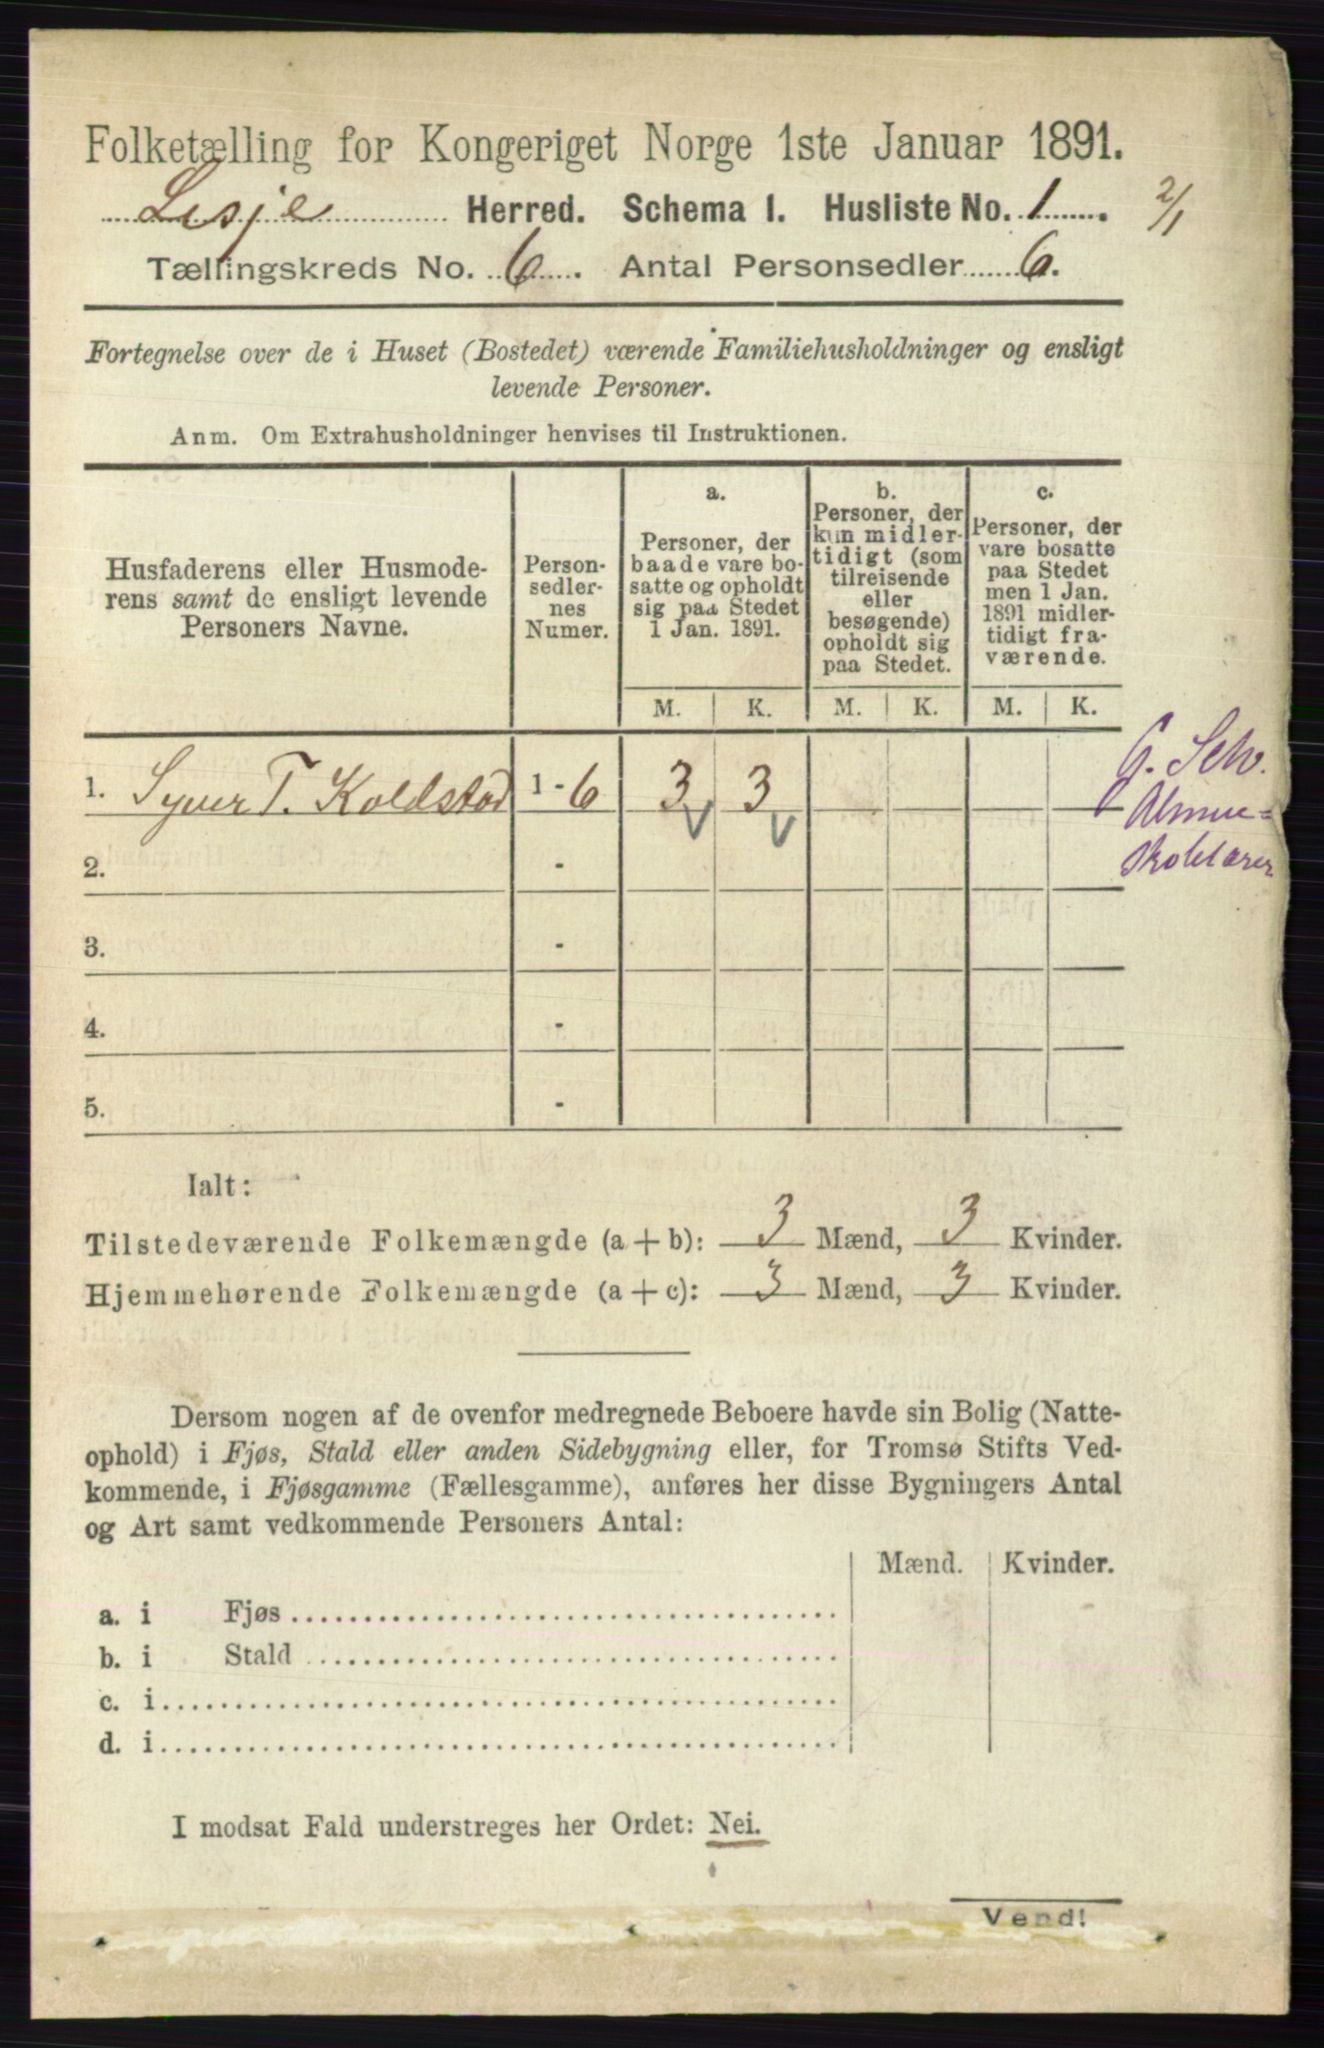 Folketælling for Kongeriget Norge 1ste Januar 1891.
Lesje Herred. Schema I. Husliste No. 1. 2/1
Tællingskreds No. 6. Antal Personsedler 6.
Fortegnelse over de i Huset (Bostedet) værende Familiehusholdninger og ensligt
levende Personer.
Anm. Om Extrahusholdninger henvises til Instruktionen.
Husfaderens eller Husmode-
rens samt de ensligt levende
Personers Navne.
Person-
sedler-
nes
Numer.
a.
Personer, der
baade vare bo-
satte og opholdt
sig paa Stedet
1 Jan. 1891.
b.
Personer, der
kun midler-
tidigt (som
tilreisende
eller
besøgende)
opholdt sig
paa Stedet.
c.
Personer, der
vare bosatte
paa Stedet
men 1 Jan.
1891 midler-
tidigt fra-
værende.
M. K. M. K. M. K.
1. Syver T. Koldstad 1 - 6 3 3
G. Selv.
Almue-
skolelærer
2. -
3. -
4. -
5. -
Ialt:
Tilstedeværende Folkemængde (a + b): 3 Mænd, 3 Kvinder.
Hjemmehørende Folkemængde (a + c): 3 Mænd, 3 Kvinder.
Dersom nogen af de ovenfor medregnede Beboere havde sin Bolig (Natte-
ophold) i Fjøs, Stald eller anden Sidebygning eller, for Tromsø Stifts Ved-
kommende, i Fjøsgamme (Fællesgamme), anføres her disse Bygningers Antal
og Art samt vedkommende Personers Antal:
Mænd. Kvinder.
a. i Fjøs
b. i Stald
c. i
d. i
I modsat Fald understreges her Ordet: Nei.
Vend!